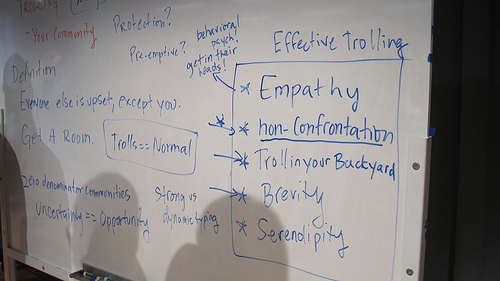 Trolling
- Your Community
Protection?
Pre-emptive?
behavioral
psych!
get in their
heads!
Definition
Everyone else is upset, except you.
Get A Room.
Trolls == Normal
Zero denominator communities
Uncertainty == Opportunity
Strong vs
dynamic typing
Effective Trolling
* Empathy
* non-Confrontation
* Troll in your Backyard
* Brevity
* Serendipity